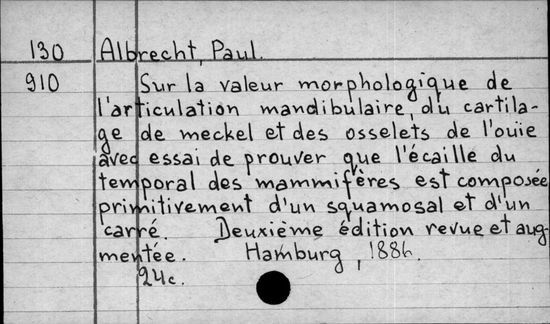 130 Albrecht, Paul.
910 Sur la valeur morphologique de
l'articulation mandibulaire, du cartila-
ge de meckel et des osselets de l'ouie
avec essai de prouver que l'écaille du
temporal des mammifères est composée
primitivement d'un squamosal et d'un
carré. Deuxième édition revue et aug-
mentée. Hamburg, 1886.
24c.